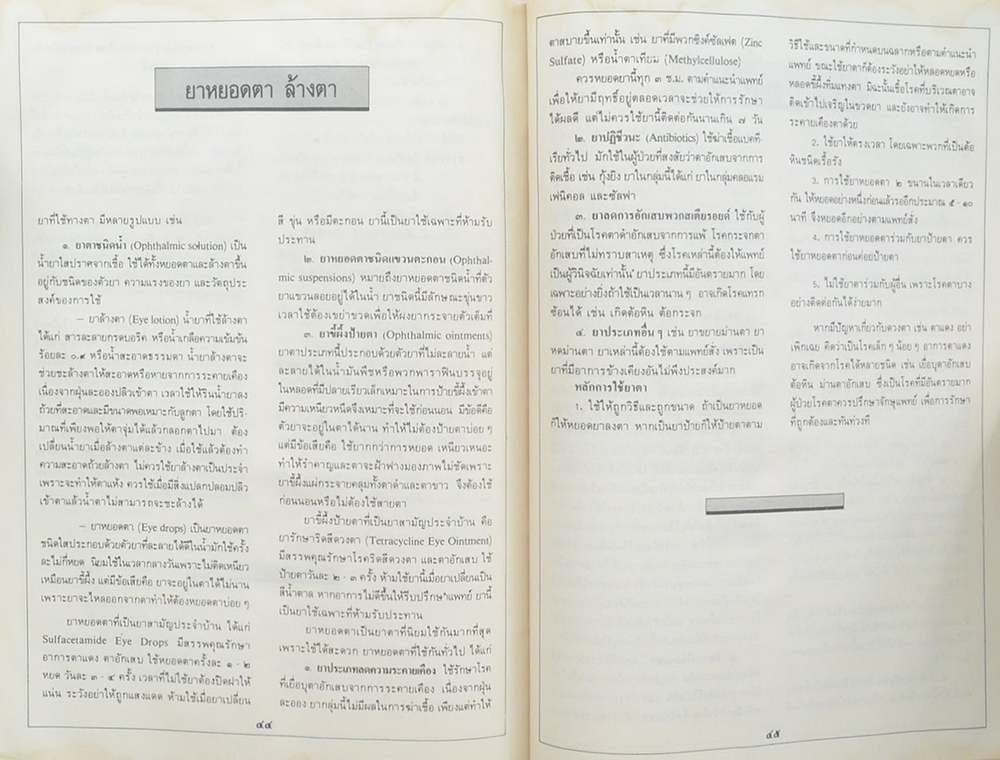 ยาหยอดตา ล้างตา
ยาที่ใช้ทางตา มีหลายรูปแบบ เช่น
๑. ยาตาชนิดน้ำ (Ophthalmic solution) เป็น
น้ำยาใสปราศจากเชื้อ ใช้ได้ทั้งหยอดตาและล้างตาขึ้น
อยู่กับชนิดของตัวยา ความแรงของยา และวัตถุประ
สงค์ของการใช้
– ยาล้างตา (Eye lotion) น้ำยาที่ใช้ล้างตา
ได้แก่ สารละลายกรดบอริค หรือน้ำเกลือความเข้มข้น
ร้อยละ ๐.๙ หรือน้ำสะอาดธรรมดา น้ำยาล้างตาจะ
ช่วยชะล้างตาให้สะอาดหรือหายจากการระคายเคือง
เนื่องจากฝุ่นละอองปลิวเข้าตา เวลาใช้ให้รินน้ำยาลง
ถ้วยที่สะอาดและมีขนาดพอเหมาะกับลูกตา โดยใช้ปริ-
มาณที่เพียงพอให้ตาจุ่มได้แล้วกลอกตาไปมา ต้อง
เปลี่ยนน้ำยาเมื่อล้างตาแต่ละข้าง เมื่อใช้แล้วต้องทำ
ความสะอาดถ้วยล้างตา ไม่ควรใช้ยาล้างตาเป็นประจำ
เพราะจะทำให้ตาแห้ง ควรใช้เมื่อมีสิ่งแปลกปลอมปลิว
เข้าตาแล้วน้ำตาไม่สามารถจะชะล้างได้
– ยาหยอดตา (Eye drops) เป็นยาหยอดตา
ชนิดใสประกอบด้วยตัวยาที่ละลายได้ดีในน้ำมักใช้ครั้ง
ละไม่กี่หยด นิยมใช้ในเวลากลางวันเพราะไม่ติดเหนียว
เหมือนยาขี้ผึ้ง แต่มีข้อเสียคือ ยาจะอยู่ในตาได้ไม่นาน
เพราะยาจะไหลออกจากตาทำให้ต้องหยอดตาบ่อยๆ
ยาหยอดตาที่เป็นยาสามัญประจำบ้าน ได้แก่
Sulfacetamide Eye Drops มีสรรพคุณรักษา
อาการตาแดง ตาอักเสบ ใช้หยอดตาครั้งละ ๑ - ๒
หยด วันละ ๓ - ๔ ครั้ง เวลาที่ไม่ใช้ยาต้องปิดฝาให้
แน่น ระวังอย่าให้ถูกแสงแดด ห้ามใช้เมื่อยาเปลี่ยน
สี ขุ่น หรือมีตะกอน ยานี้เป็นยาใช้เฉพาะที่ห้ามรับ
ประทาน
๒. ยาหยอดตาชนิดแขวนตะกอน (Ophthal-
mic suspensions) หมายถึงยาหยอดตาชนิดน้ำที่ตัว
ยาแขวนลอยอยู่ได้ในน้ำ ยาชนิดนี้มีลักษณะขุ่นขาว
เวลาใช้ต้องเขย่าขวดเพื่อให้ผงยากระจายตัวเต็มที่
๓. ยาขี้ผึ้งป้ายตา (Ophthalmic ointments)
ยาตาประเภทนี้ประกอบด้วยตัวยาที่ไม่ละลายน้ำ แต่
ละลายได้ในน้ำมันพืชหรือพวกพาราฟินบรรจุอยู่
ในหลอดที่มีปลายเรียวเล็กเหมาะในการป้ายขี้ผึ้งเข้าตา
มีความเหนียวหนืดจึงเหมาะที่จะใช้ก่อนนอน มีข้อดีคือ
ตัวยาจะอยู่ในตาได้นาน ทำให้ไม่ต้องป้ายตาบ่อยๆ
แต่มีข้อเสียคือ ใช้ยากกว่าการหยอด เหนียวเหนอะ
ทำให้รำคาญและตาจะฝ้าฟางมองภาพไม่ชัดเพราะ
ยาขี้ผึ้งแผ่กระจายคลุมทั้งตาดำและตาขาว จึงต้องใช้
ก่อนนอนหรือไม่ต้องใช้สายตา
ยาขี้ผึ้งป้ายตาที่เป็นยาสามัญประจำบ้าน คือ
ยารักษาริดสีดวงตา (Tetracycline Eye Ointment)
มีสรรพคุณรักษาโรคริดสีดวงตา และตาอักเสบ ใช้
ป้ายตาวันละ ๒ - ๓ ครั้ง ห้ามใช้ยานี้เมื่อยาเปลี่ยนเป็น
สีน้ำตาล หากอาการไม่ดีขึ้นให้รีบปรึกษาแพทย์ ยานี้
เป็นยาใช้เฉพาะที่ห้ามรับประทาน
ยาหยอดตาเป็นยาตาที่นิยมใช้กันมากที่สุด
เพราะใช้ได้สะดวก ยาหยอดตาที่ใช้กันทั่วไป ได้แก่
๑. ยาประเภทลดความระคายเคือง ใช้รักษาโรค
ที่เยื่อบุตาอักเสบจากการระคายเคือง เนื่องจากฝุ่น
ละออง ยากลุ่มนี้ไม่มีผลในการฆ่าเชื้อ เพียงแต่ทำให้
๔๔
ตาสบายขึ้นเท่านั้น เช่น ยาที่มีพวกซิงค์ซัลเฟต (Zinc
Sulfate) หรือน้ำตาเทียม (Methylcellulose)
ควรหยอดยานี้ทุก ๓ ช.ม. ตามคำแนะนำแพทย์
เพื่อให้ยามีฤทธิ์อยู่ตลอดเวลาจะช่วยให้การรักษา
ได้ผลดี แต่ไม่ควรใช้ยานี้ติดต่อกันนานเกิน ๗ วัน
๒. ยาปฏิชีวนะ (Antibiotics) ใช้ฆ่าเชื้อแบคที-
เรียทั่วไป มักใช้ในผู้ป่วยที่สงสัยว่าตาอักเสบจากการ
ติดเชื้อ เช่น กุ้งยิง ยาในกลุ่มนี้ได้แก่ ยาในกลุ่มคลอแรม
เฟนิคอล และซัลฟา
๓. ยาลดการอักเสบพวกสเตียรอยด์ ใช้กับผู้
ป่วยที่เป็นโรคตาดำอักเสบจากการแพ้ โรคกระจกตา
อักเสบที่ไม่ทราบสาเหตุ ซึ่งโรคเหล่านี้ต้องให้แพทย์
เป็นผู้วินิจฉัยเท่านั้น ยาประเภทนี้มีอันตรายมาก โดย
เฉพาะอย่างยิ่งถ้าใช้เป็นเวลานานๆ อาจเกิดโรคแทรก
ซ้อนได้ เช่น เกิดต้อหิน ต้อกระจก
๔. ยาประเภทอื่นๆ เช่น ยาขยายม่านตา ยา
หดม่านตา ยาเหล่านี้ต้องใช้ตามแพทย์สั่ง เพราะเป็น
ยาที่มีอาการข้างเคียงอันไม่พึงประสงค์มาก
หลักการใช้ยาตา
1. ใช้ให้ถูกวิธีและถูกขนาด ถ้าเป็นยาหยอด
ก็ให้หยอดยาลงตา หากเป็นยาป้ายก็ให้ป้ายตาตาม
วิธีใช้และขนาดที่กำหนดบนฉลากหรือตามคำแนะนำ
แพทย์ ขณะใช้ยาตาก็ต้องระวังอย่าให้หลอดหยดหรือ
หลอดขี้ผึ้งทิ่มแทงตา มิฉะนั้นเชื้อโรคที่บริเวณตาอาจ
ติดเข้าไปเจริญในขวดยา และยังอาจทำให้เกิดการ
ระคายเคืองตาด้วย
2. ใช้ยาให้ตรงเวลา โดยเฉพาะพวกที่เป็นต้อ
หินชนิดเรื้อรัง
3. การใช้ยาหยอดตา ๒ ขนานในเวลาเดียว
กัน ให้หยอดอย่างหนึ่งก่อนแล้วรออีกประมาณ ๕ - ๑๐
นาที จึงหยอดอีกอย่างตามแพทย์สั่ง
4. การใช้ยาหยอดตาร่วมกับยาป้ายตา ควร
ใช้ยาหยอดตาก่อนค่อยป้ายตา
5. ไม่ใช้ยาตาร่วมกับผู้อื่น เพราะโรคตาบาง
อย่างติดต่อกันได้ง่ายมาก
หากมีปัญหาเกี่ยวกับดวงตา เช่น ตาแดง อย่า
เพิกเฉย คิดว่าเป็นโรคเล็กๆ น้อยๆ อาการตาแดง
อาจเกิดจากโรคได้หลายชนิด เช่น เยื่อบุตาอักเสบ
ต้อหิน ม่านตาอักเสบ ซึ่งเป็นโรคที่มีอันตรายมาก
ผู้ป่วยโรคตาควรปรึกษาจักษุแพทย์ เพื่อการรักษา
ที่ถูกต้องและทันท่วงที
๔๕